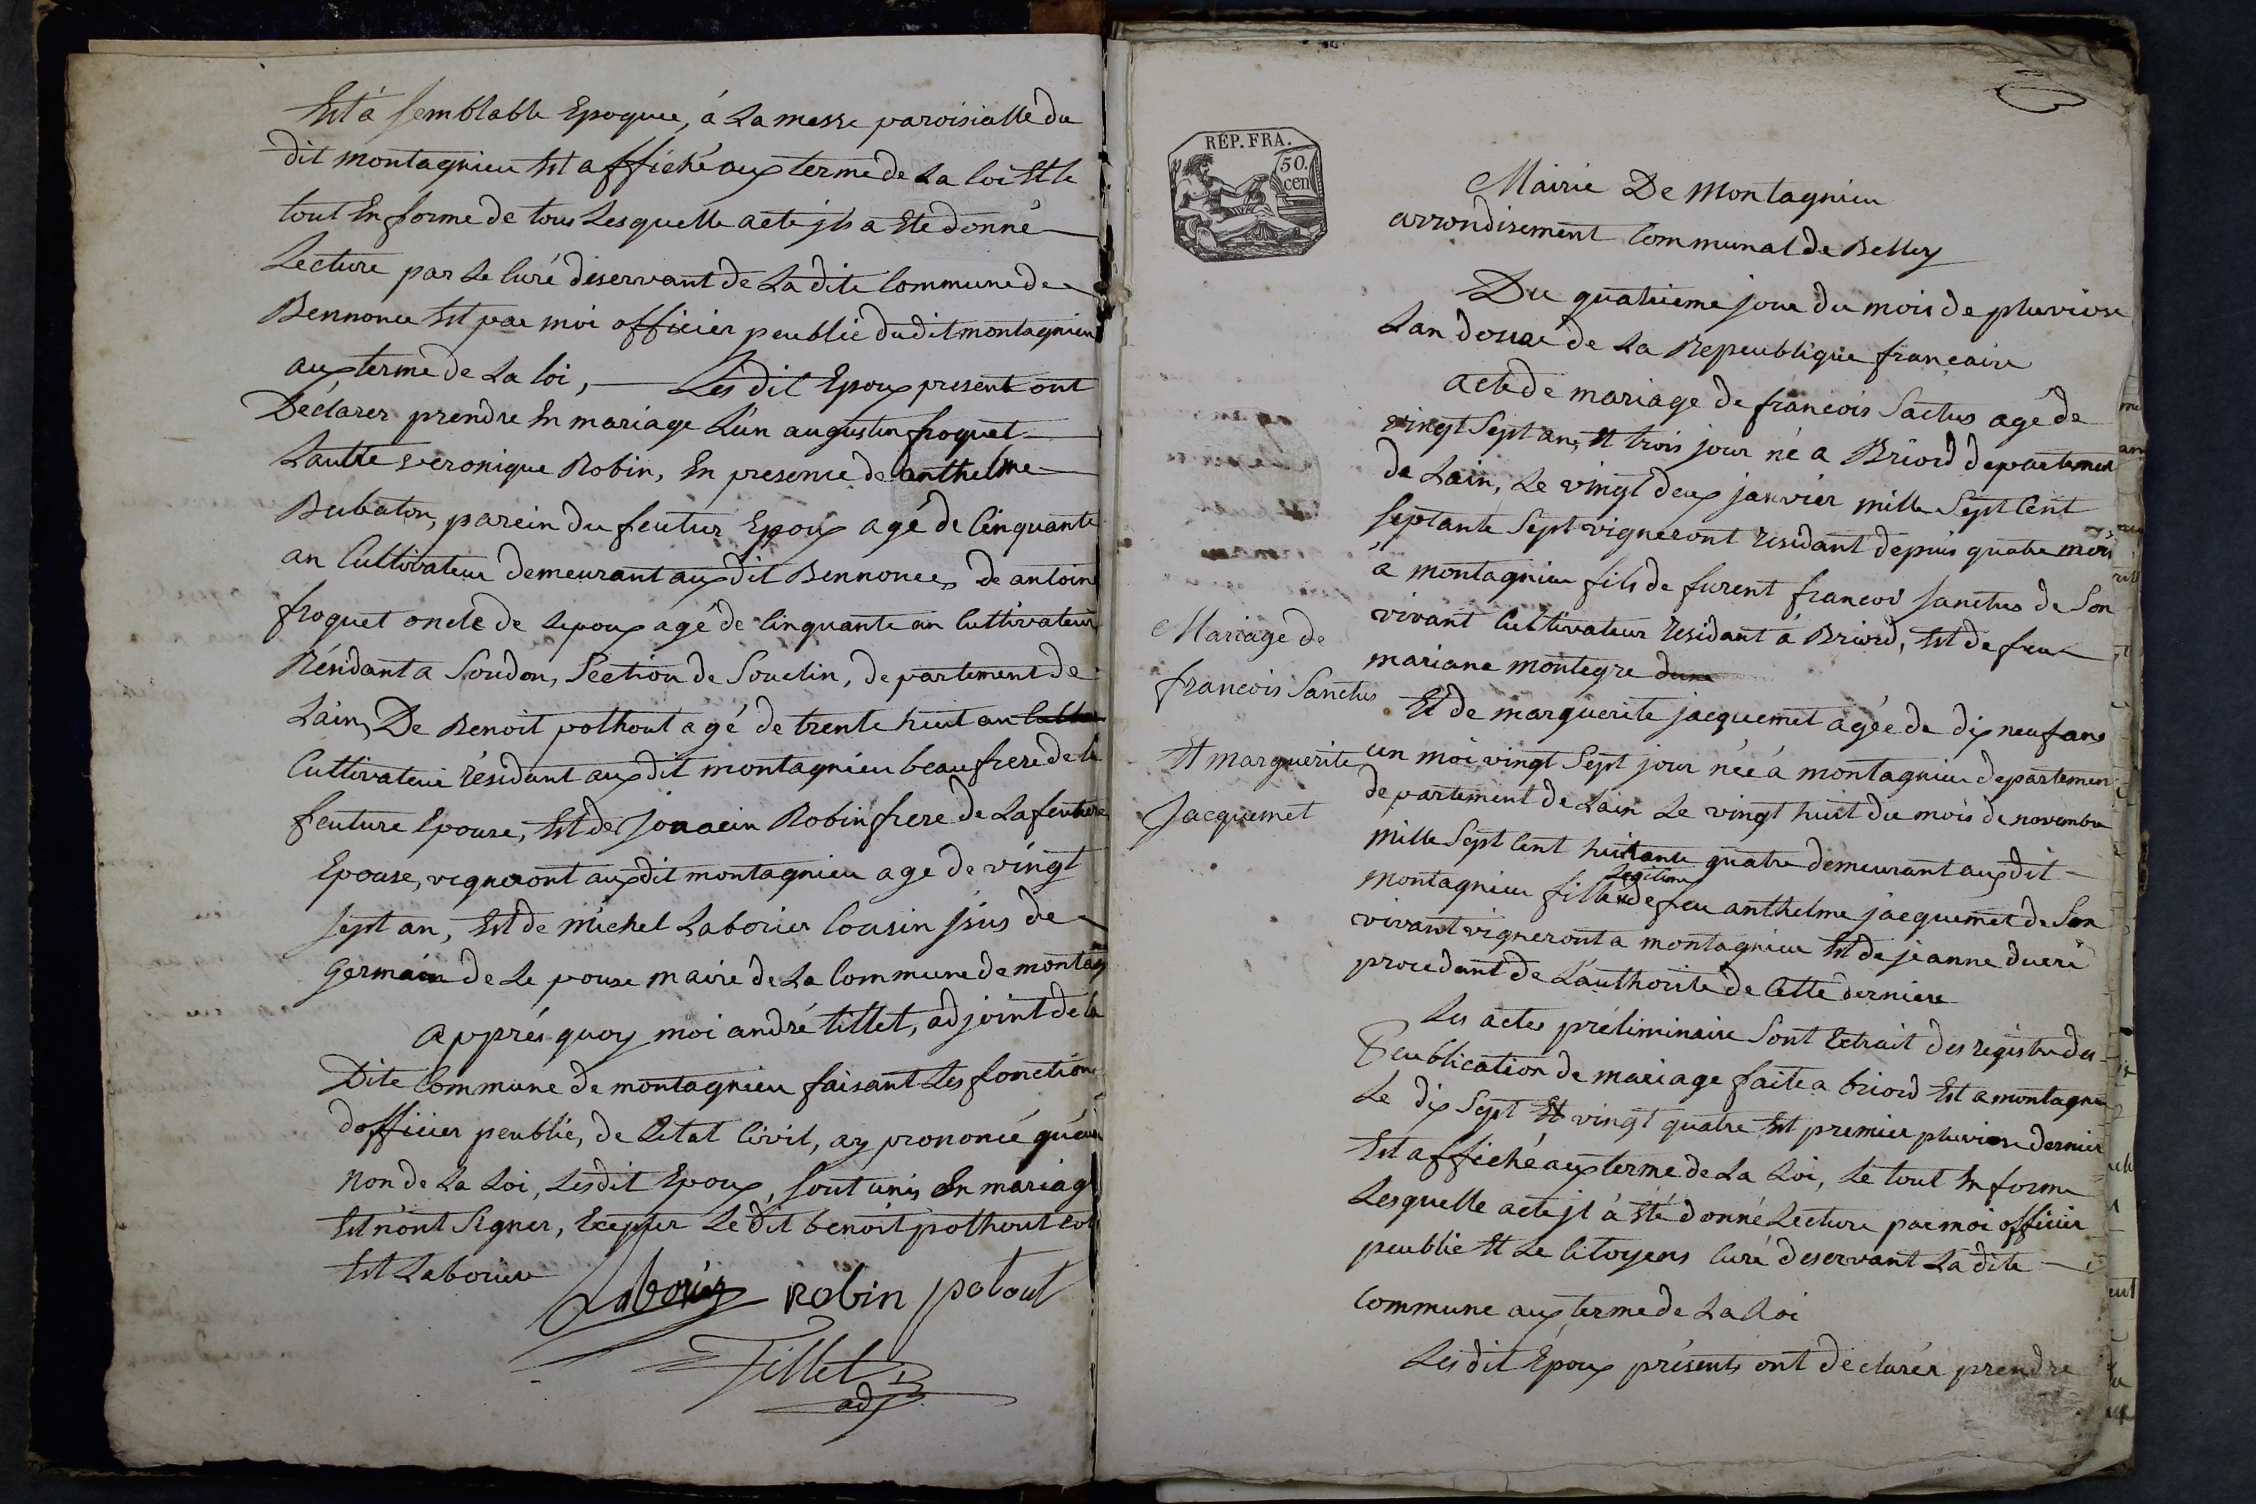 Est à semblable Epoque, á La messe paroisialle du
dit montagnieu Est affiché aux terme de La loi Et le
tout En forme de tous Lesquelle acte jls a Ete donné
Lecture par Le Curé déservant de La dite Commune de
Bennonce Est par moi officier peublic dudit montagnieu
aux terme de La loi, — Les dit Epoux present ont
Déclarer prendre En mariage L'un augustin froquet
Lautre veronique Robin, En presence de anthelme
Bubaton, parein du feutur Epoux agé de Cinquante
an Cultivateur demeurant aux dit Bennonces, De antoine
froquet oncle de Lepoux agé de Cinquante an Cultivateur
Résidant a Soudon, Section de Souclin, departement de
Lain, De Benoit pothout agé de trente huit an
Cultivateur résidant aux dit montagnieu beau frere de la
feuture Epouse, Est de Jonacin Robin frere de La feuture
Epouse, vigneront aux dit montagnieu age de vingt
sept an, Est de michel Laborier Cousin jsus de
Germain de Le pouse maire de La Commune de montag
Apprés quoy moi andré tillet, adjoint de la
Dite Commune de montagnieu faisant Les fonction
dofficier peublic, de Letat Civil, ay prononcé quau
Non de La Loi, Lesdit Epoux, sont unis En mariage
Est n'ont Signer, Exepter Le dit benoit pothout
Est Laborier
Laborier Robin potout
Tillet
adj
REP. FRA.
50.
cen
Mairie De Montagnieu
arrondisement Communal de Belley
Du quatrieme jour du mois de pluviose
Lan douze de La Repeublique francaise
acte de mariage de francois Sactus agé de
vingt Sept ans, Et trois jour né a Briord departement
de Lain, Le vingt deux janvier mille Sept Cent
septante Sept vigneront residant depuis quatre mois
á montagnieu fils de furent francois sanctus de Son
vivant Cultivateur residant á Briord, Est de feu
mariane montegre
Mariage de
francois Sanctus
Et marguerite
Jacquemet
Et de marguerite jacquemet agée de dix neuf ans
un moi vingt Sept jour née á montagnieu departement
departement de Lain Le vingt huit du mois de novembre
mille Sept Cent huitante quatre demeurant aux dit
montagnieu fille Legitime de feu anthelme jacquemet de Son
vivant vigneront a montagnieu Est de jeanne
procedant de L'authorité de Cette derniere
Les actes préliminaire Sont Extrait des registre des
Peublication de mariage faite a briord Est a montagnieu
Le dix Sept Et vingt quatre Est premier pluviose dernier
Est affiché aux terme de La Loi, Le tout En forme
Lesquelle acte jl á Eté donné Lecture par moi officier
peublic Et Le Citoyens Curé deservant La dite
Commune aux terme de La Loi
Les dit Epoux présents ont declarér prendre